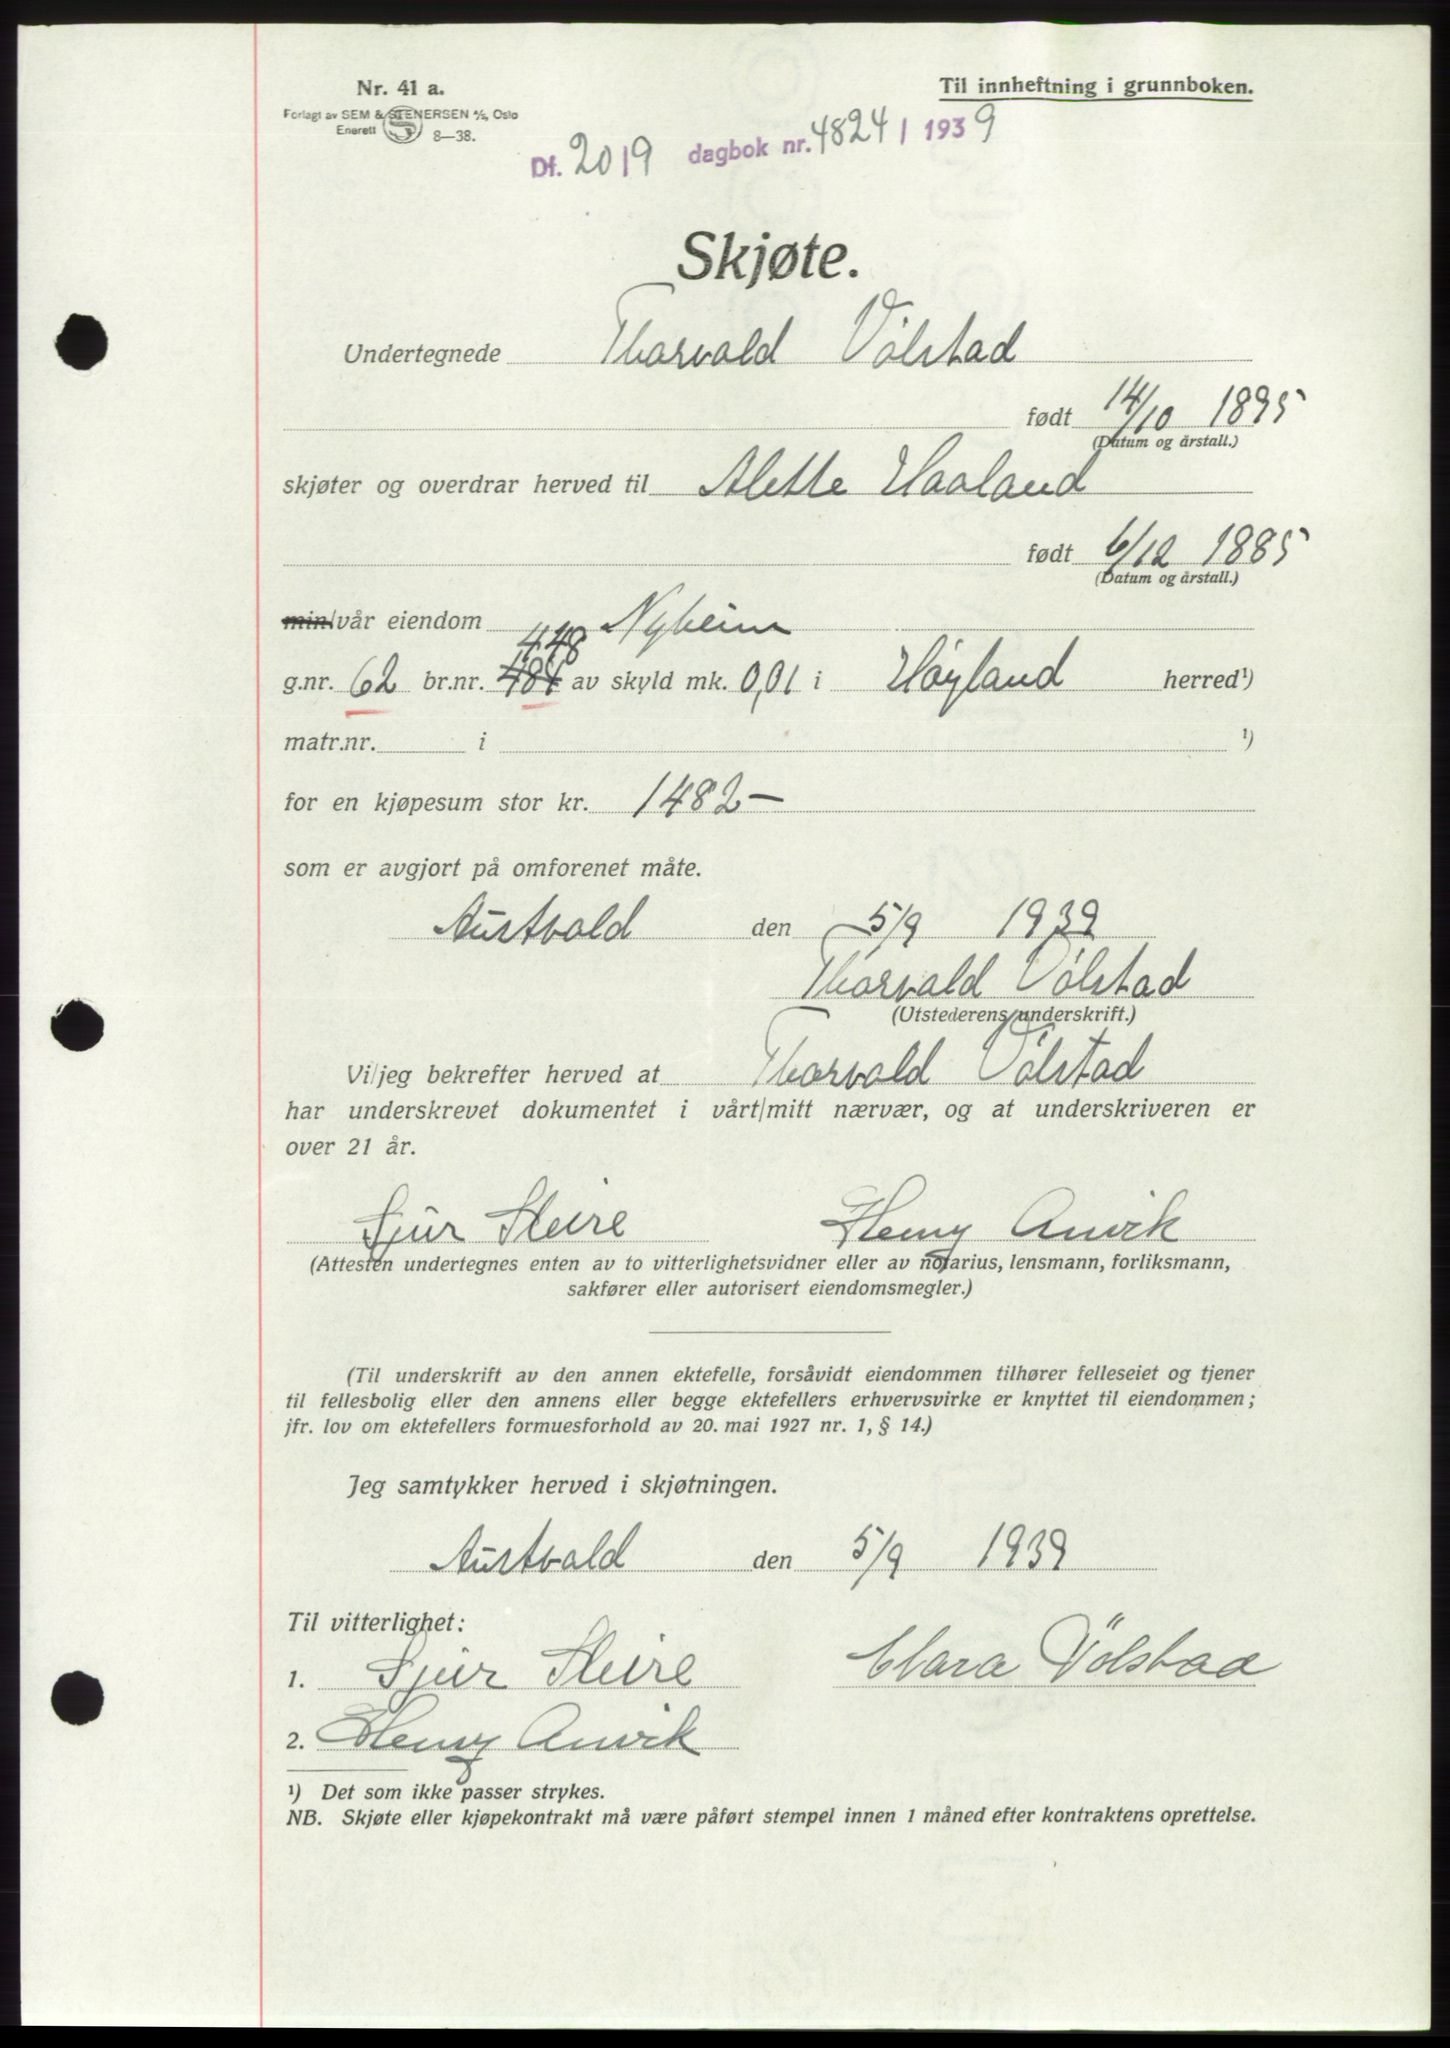 Nr. 41 a.
Forlagt av SEM & STENERSEN A/S, Oslo
Enerett S 8—38.
Til innheftning i grunnboken.
Df. 20/9 dagbok nr. 4824 / 1939
Skjøte.
Undertegnede Thorvald Vølstad
født 14/10 1895
(Datum og årstall.)
skjøter og overdrar herved til Alette Haaland
født 6/12 1885
(Datum og årstall.)
min/vår eiendom Nyheim
448
g.nr. 62 br.nr. 484 av skyld mk. 0,01 i Høyland herred¹)
matr.nr. i ¹)
for en kjøpesum stor kr. 1482—
som er avgjort på omforenet måte.
Austvold den 5/9 1939
Thorvald Vølstad
(Utstederens underskrift.)
Vi/jeg bekrefter herved at Thorvald Vølstad
har underskrevet dokumentet i vårt/mitt nærvær, og at underskriveren er
over 21 år.
Sjur Steire Henry Anvik
(Attesten undertegnes enten av to vitterlighetsvidner eller av notarius, lensmann, forliksmann,
sakfører eller autorisert eiendomsmegler.)
(Til underskrift av den annen ektefelle, forsåvidt eiendommen tilhører felleseiet og tjener
til fellesbolig eller den annens eller begge ektefellers erhvervsvirke er knyttet til eiendommen;
jfr. lov om ektefellers formuesforhold av 20. mai 1927 nr. 1, § 14.)
Jeg samtykker herved i skjøtningen.
Austvold den 5/9 1939
Til vitterlighet:
1. Sjur Steire Clara Vølstad
2. Henry Anvik
¹) Det som ikke passer strykes.
NB. Skjøte eller kjøpekontrakt må være påført stempel innen 1 måned efter kontraktens oprettelse.